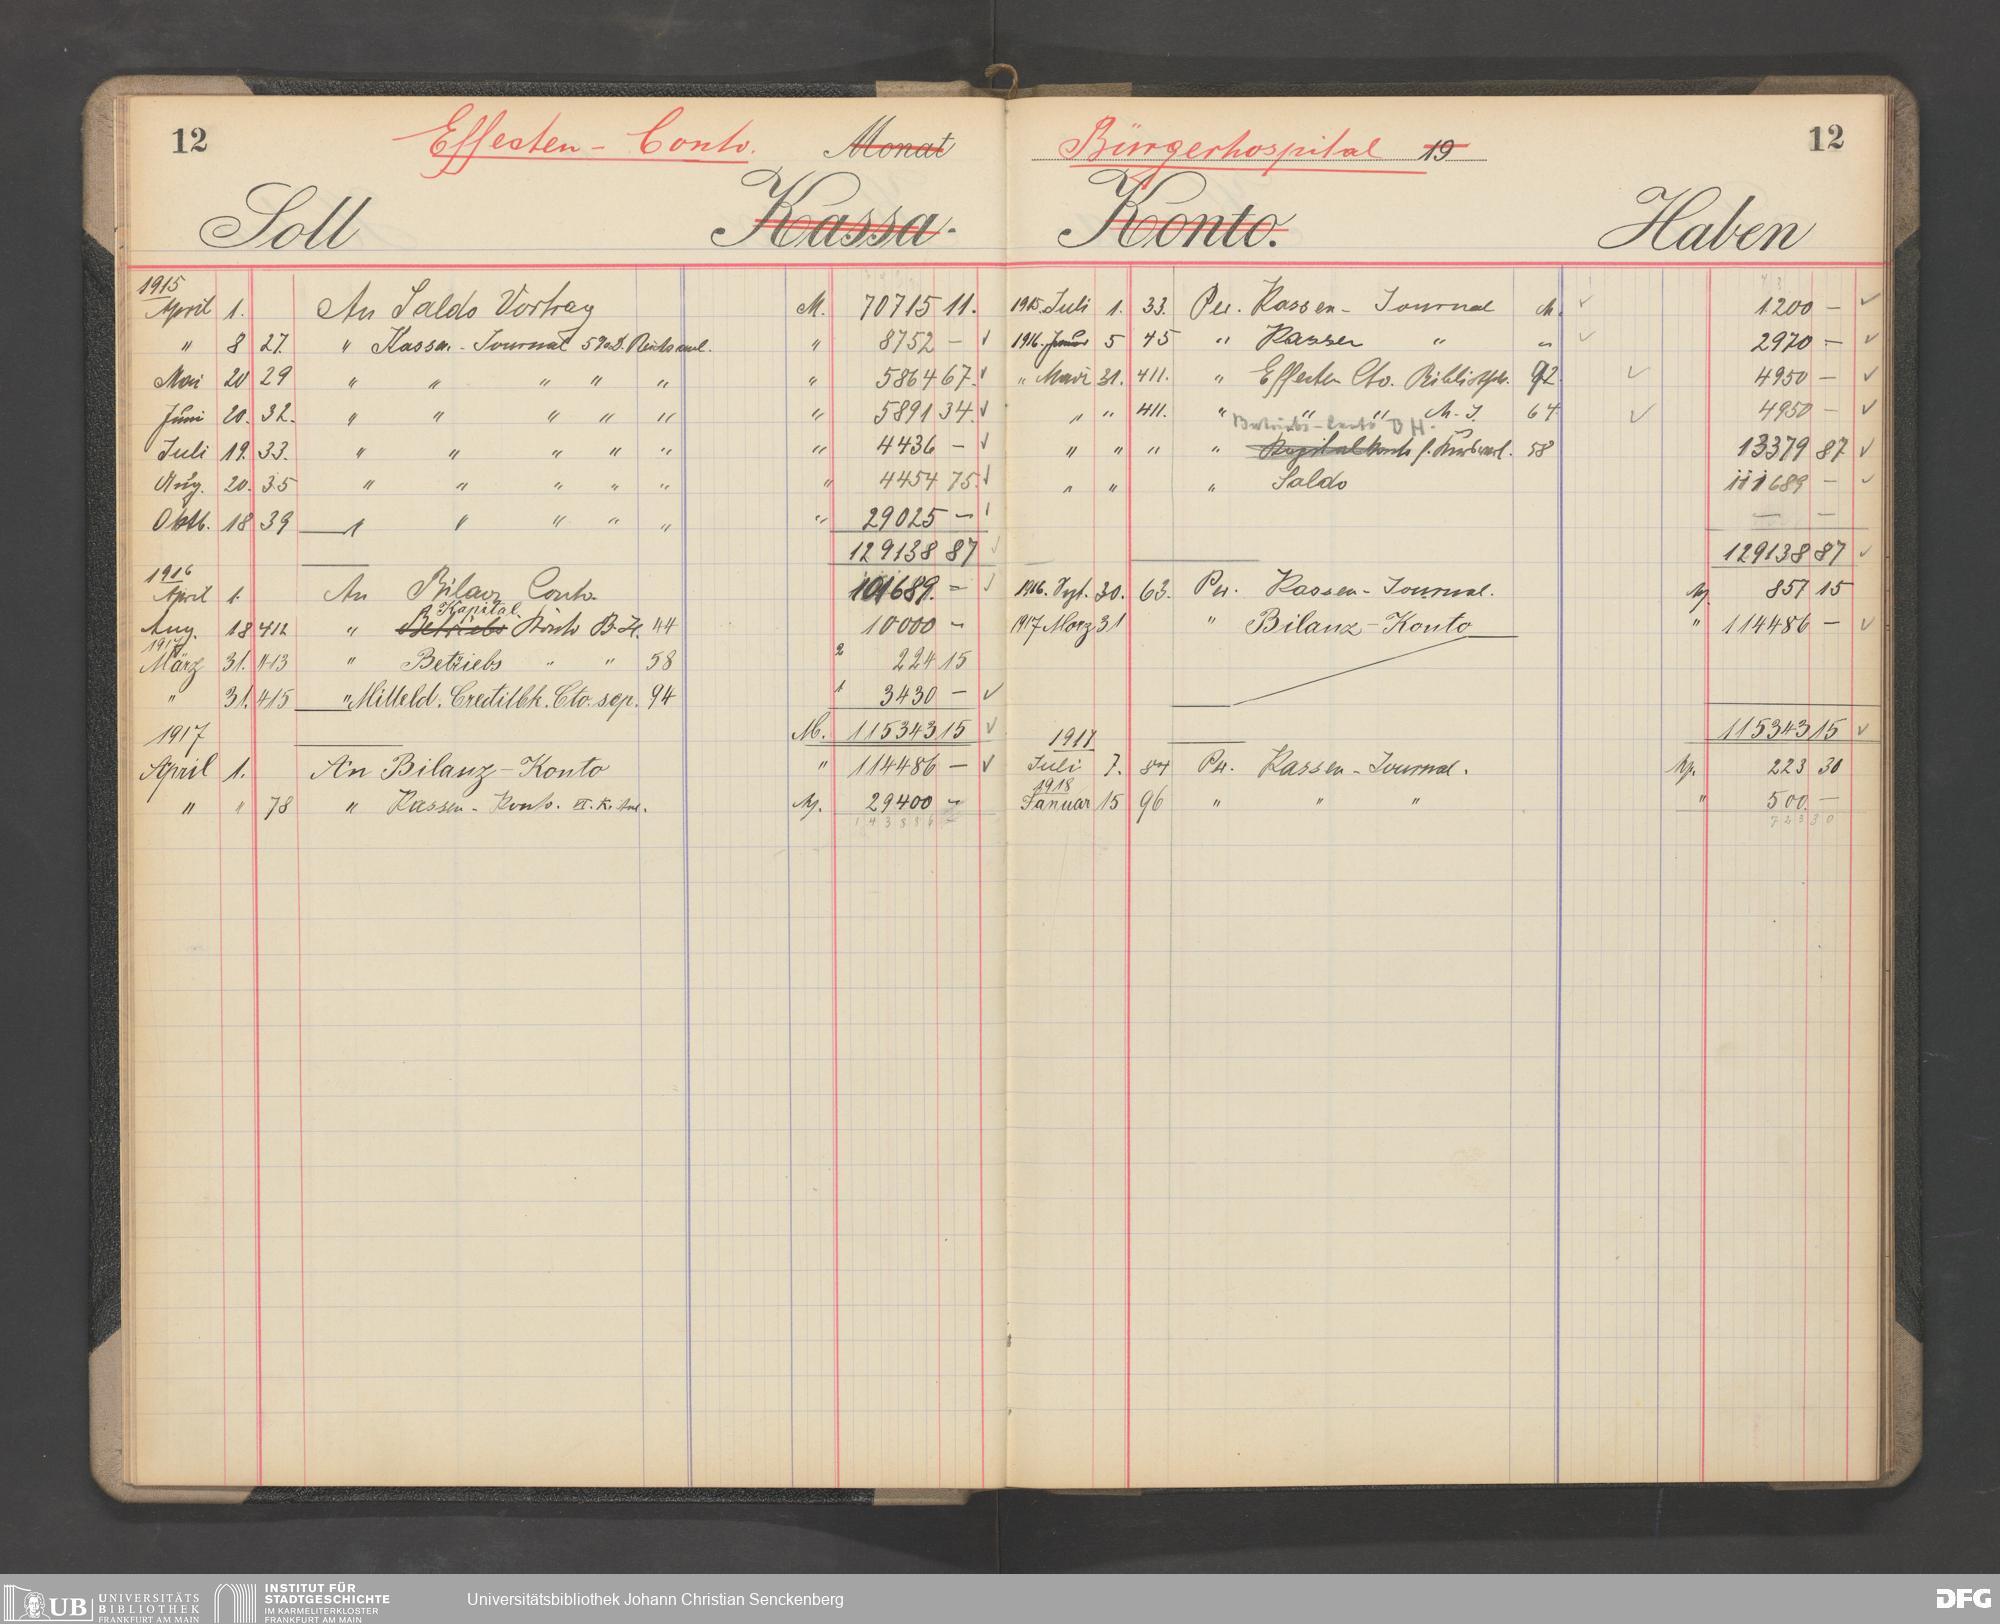 12 Effecten - Conto. Monat
Soll Kassa.
1915
April 1. An Saldo Vortrag M. 70715 11.
" 8 27. " Kassa - Journal 5% D. Reichsanl. " 8752 —
Mai 20 29 " " " " " " 5864 67.
Juni 20. 32. " " " " " " 5891 34.
Juli 19. 33. " " " " " " 4436 —
Aug. 20. 35 " " " " " " 4454 75.
Oktb. 18 39 " " " " " " 29025 —
129138 87
1916
April 1. An Bilanz Conto 101689. —
Kapital
Aug. 18 412 " Betriebs Konto B. H. 44 10000 —
1917
März 31. 413 " Betriebs " " 58 2 224 15
" 31. 415 " Mitteld. Creditbk. Cto. sep. 94 1 3430 —
1917 M. 115343 15
April 1. An Bilanz - Konto " 114486 —
" " 78 " Kassen - Konto. VI. K. Anl. M. 29400 —
143886 —
Bürgerhospital 19 12
Konto. Haben
1915. Juli 1. 33. Per. Kassen - Journal M. 1200 —
1916. Januar 5 45 " Kassen " " 2970 —
" März 31. 411. " Effecten Cto. Bibliothek. 92. 4950 —
" " 411. " " " M. J. 64 4950 —
Betriebs - Conto B H.
" " " " Kapitalkonto f. Kursverl. 58 13379 87
" " " Saldo 101689 —
129138 87
1916. Sept. 30. 63. Per. Kassen - Journal. M. 857 15
1917 März 31 " Bilanz - Konto " 114486 —
115343 15
1917
Juli 7. 84 Per. Kassen - Journal. M. 223 30
1918
Januar 15 96 " " " " 500. —
723 30
UB UNIVERSITÄTS
BIBLIOTHEK
FRANKFURT AM MAIN
INSTITUT FÜR
STADTGESCHICHTE
IM KARMELITERKLOSTER
FRANKFURT AM MAIN
Universitätsbibliothek Johann Christian Senckenberg
DFG